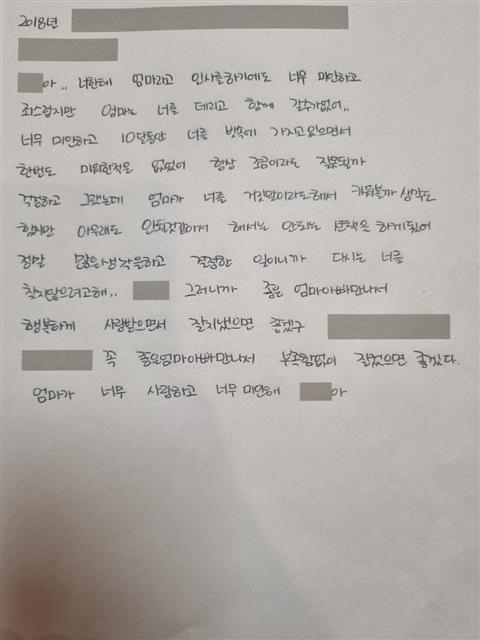 2018년
아.. 너한테 엄마라고 인사를하기에도 너무 미안하고
죄스럽지만 엄마는 너를 데리고 함께 갈수가없어..
너무 미안하고 10달동안 너를 뱃속에 가지고있으면서
한번도 미워한적은 없었어 항상 조금이라도 잘못될까
걱정하고 그랬는데 엄마가 너를 거짓말이라도해서 키워볼까 생각도
했지만 아무래도 안될것같아서 해서는 안되는 선택을 하게됬어
정말 많은생각을하고 결정한 일이니까 다시는 너를
찾지않으려고해.. 그러니까 좋은 엄마아빠만나서
행복하게 사랑받으면서 잘지냈으면 좋겠구
꼭 좋은엄마아빠만나서 부족함없이 잘컸으면 좋겠다.
엄마가 너무 사랑하고 너무 미안해 아